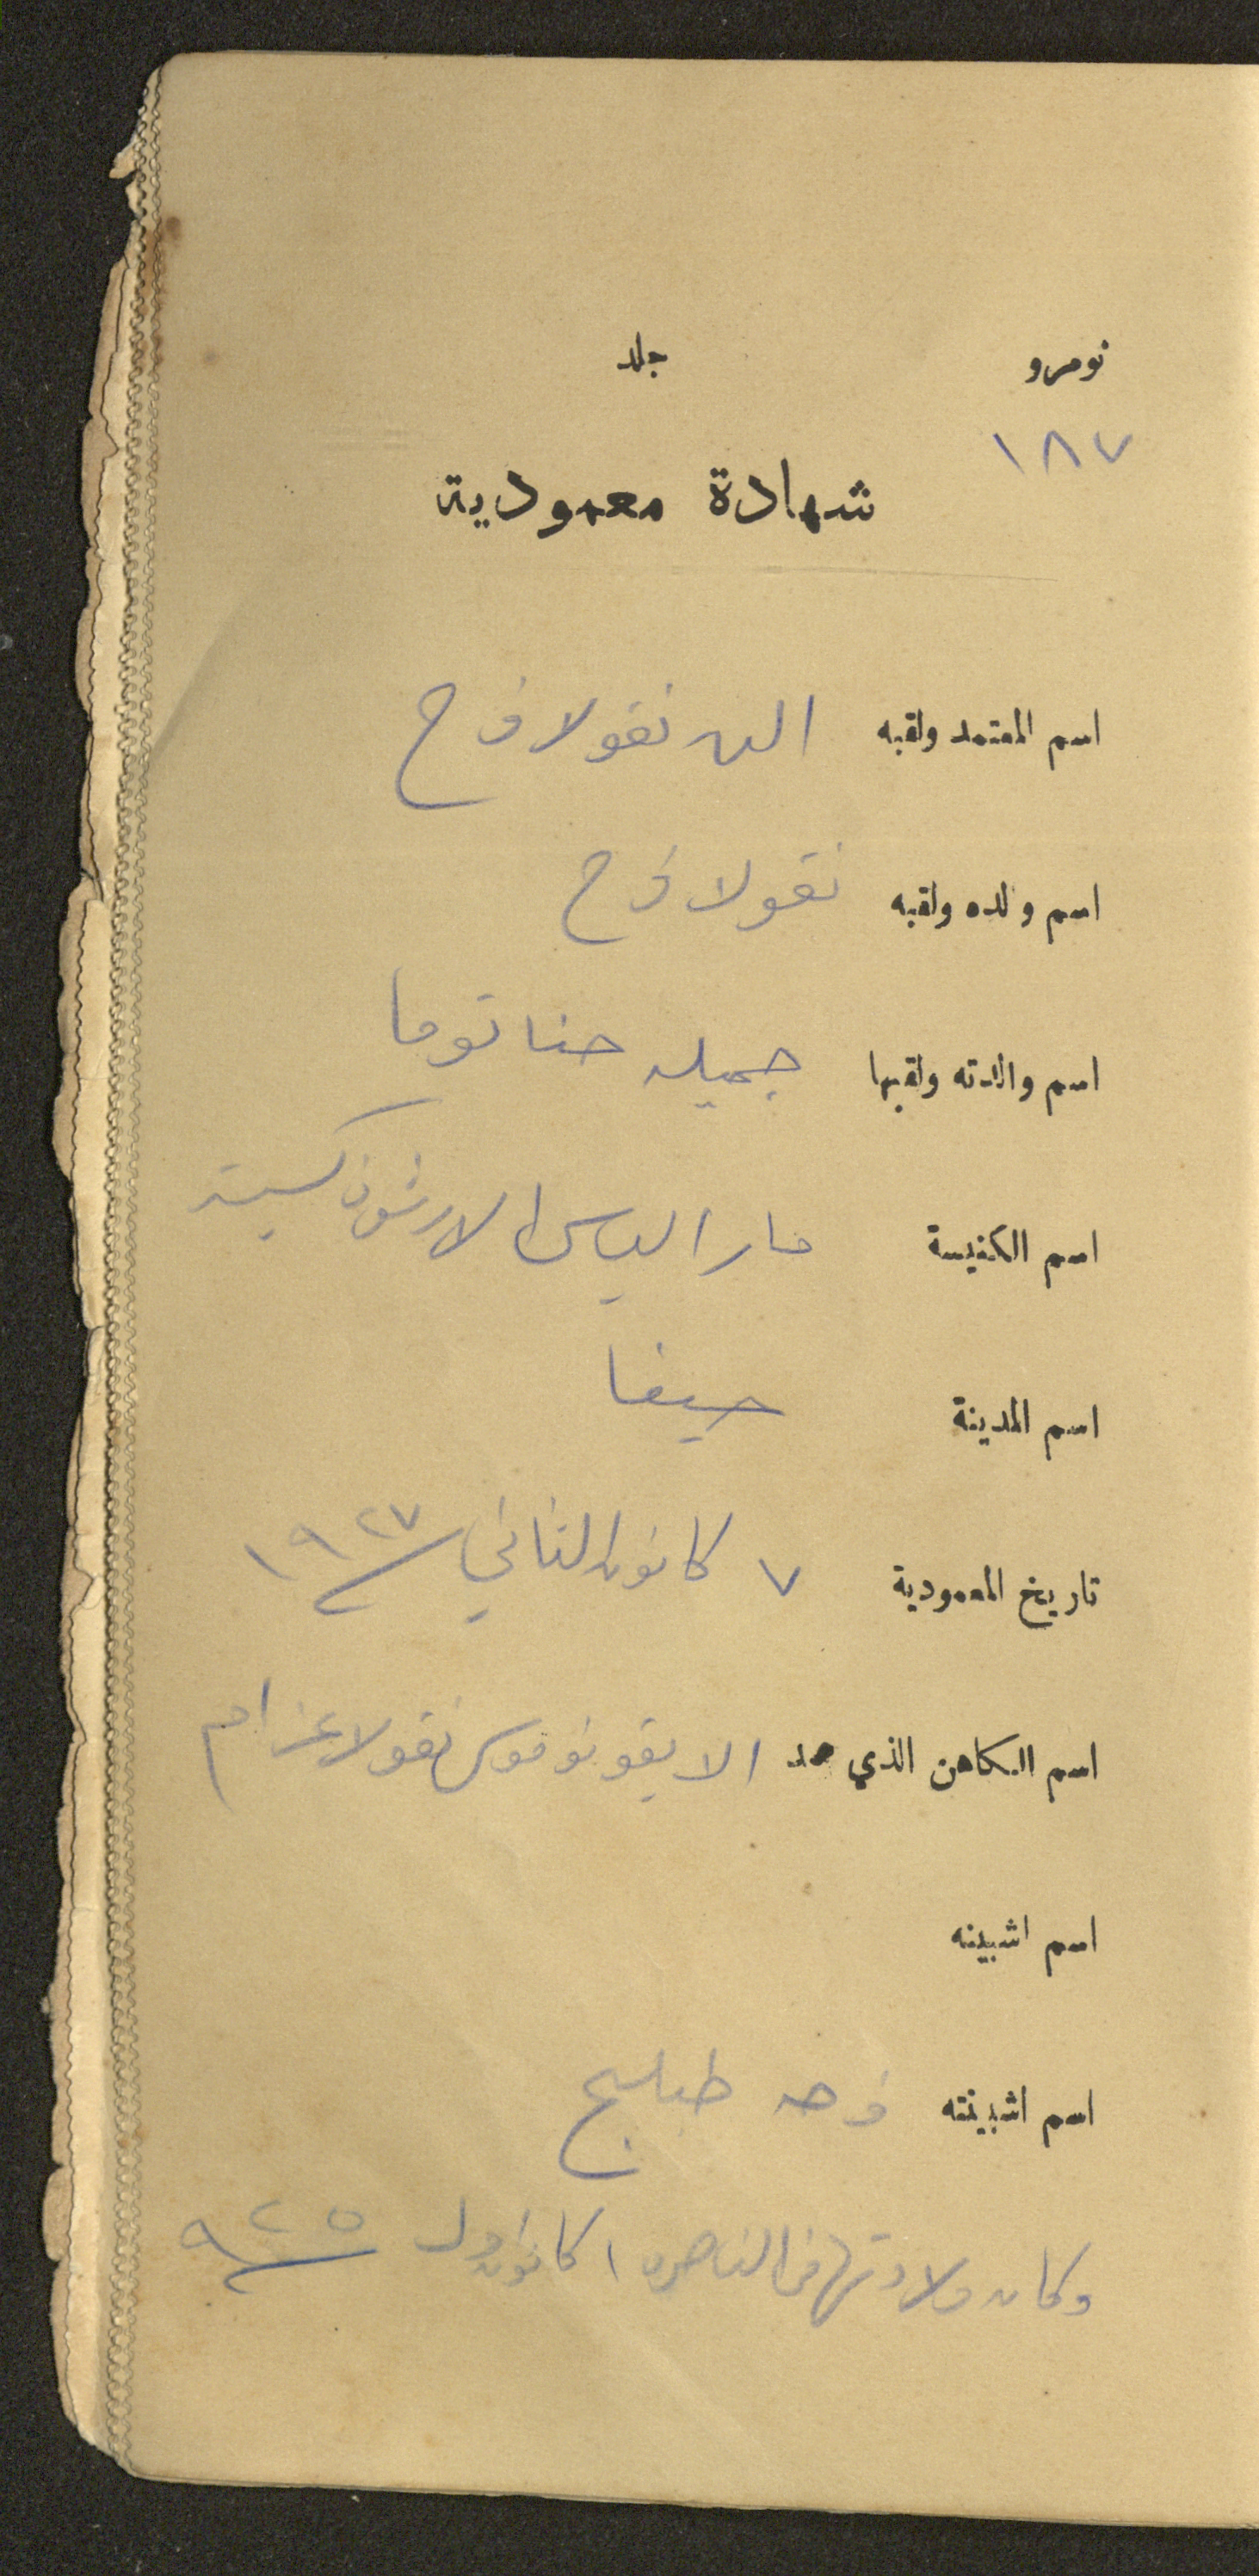 نومرو جلد
١٨٧
شهادة معمودية
اسم المعتمد ولقبه الن نقولا فرح
اسم والده ولقبه نقولا فرح
اسم والدته ولقبها جميله حنا توما
اسم الكنيسة مار الياس الارثوذكسية
اسم المدينة حيفا
تاريخ المعمودية ٧ كانون الثاني ١٩٢٧
اسم الكاهن الذي عمد الايقونوموس نقولا عزام
اسم اشبينه
اسم اشبينته فرحه
وكان ولادتها في الناصره ١ كانون اول ٩٢٥